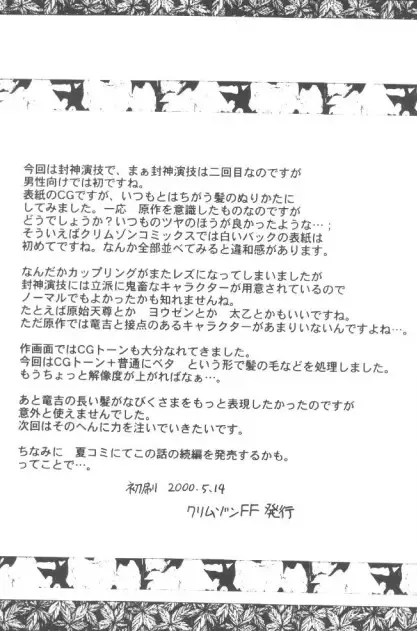 今回は封神演技で、まぁ封神演技は二回目なのですが
男性向けでは初ですね。
表紙のCGですが、いつもとはちがう髪のぬりかたに
してみました。一応　原作を意識したものなのですが
どうでしょうか？いつものツヤのほうが良かったような…；
そういえばクリムゾンコミックスでは白いバックの表紙は
初めてですね。なんか全部並べてみると違和感があります。
なんだかカップリングがまたレズになってしまいましたが
封神演技には立派に鬼畜なキャラクターが用意されているので
ノーマルでもよかったかも知れませんね。
たとえば原始天尊とか　ヨウゼンとか　太乙とかもいいですね。
ただ原作では竜吉と接点のあるキャラクターがあまりいないんですよね…。
作画面ではCGトーンも大分なれてきました。
今回はCGトーン＋普通にベタ　という形で髪の毛などを処理しました。
もうちょっと解像度が上がればなぁ…。
あと竜吉の長い髪がなびくさまをもっと表現したかったのですが
意外と使えませんでした。
次回はそのへんに力を注いでいきたいです。
ちなみに　夏コミにてこの話の続編を発売するかも。
ってことで…。
初刷　2000.5.14
クリムゾンFF 発行